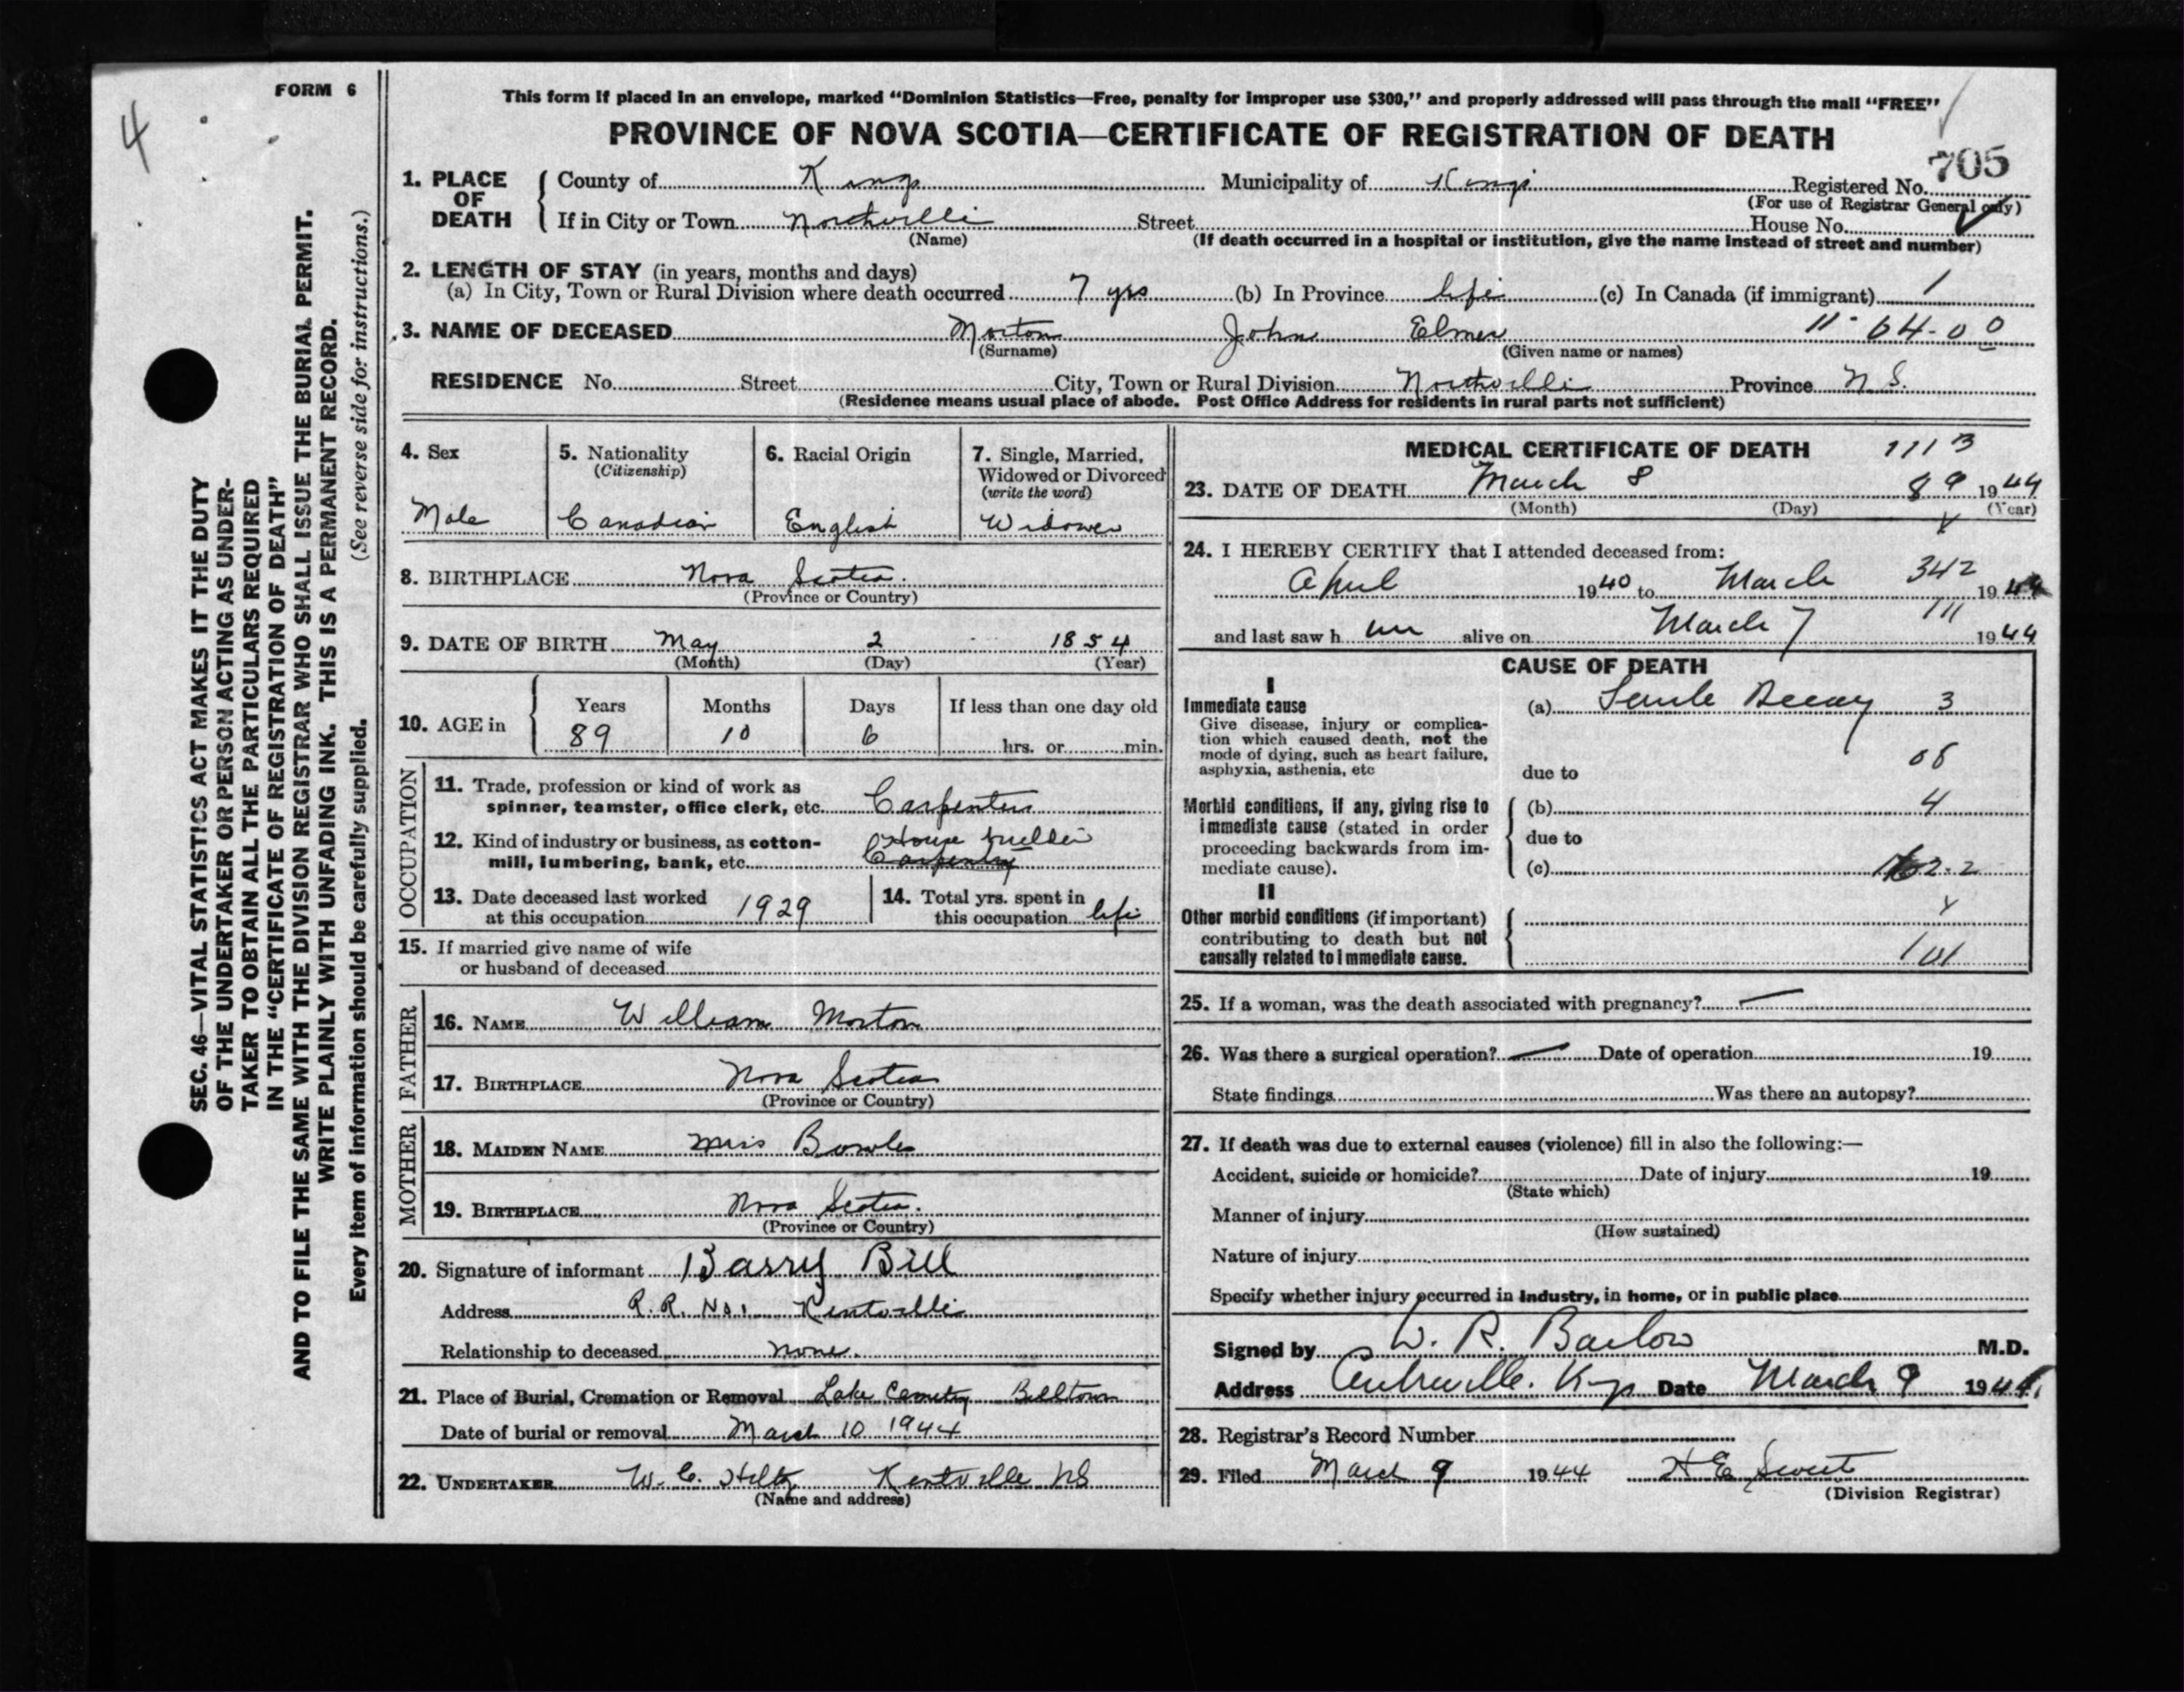 FORM 6
4
This form if placed in an envelope, marked “Dominion Statistics—Free, penalty for improper use $300,” and properly addressed will pass through the mail “FREE”
PROVINCE OF NOVA SCOTIA—CERTIFICATE OF REGISTRATION OF DEATH
705
1. PLACE OF DEATH
County of Kings Municipality of Kings Registered No.
(For use of Registrar General only)
If in City or Town Northville Street House No.
(Name) (If death occurred in a hospital or institution, give the name instead of street and number)
2. LENGTH OF STAY (in years, months and days)
(a) In City, Town or Rural Division where death occurred 7 yrs (b) In Province life (c) In Canada (if immigrant) 1
3. NAME OF DECEASED Morton John Elmer 11-64-00
(Surname) (Given name or names)
RESIDENCE No. Street City, Town or Rural Division Northville Province N.S.
(Residence means usual place of abode. Post Office Address for residents in rural parts not sufficient)
4. Sex
Male
5. Nationality
(Citizenship)
Canadian
6. Racial Origin
English
7. Single, Married,
Widowed or Divorced
(write the word)
Widower
8. BIRTHPLACE Nova Scotia.
(Province or Country)
9. DATE OF BIRTH May 2 1854
(Month) (Day) (Year)
10. AGE in
Years Months Days If less than one day old
89 10 6 hrs. or min.
OCCUPATION
11. Trade, profession or kind of work as
spinner, teamster, office clerk, etc. Carpenter
12. Kind of industry or business, as cotton- House builder
mill, lumbering, bank, etc. Carpentry
13. Date deceased last worked
at this occupation 1929
14. Total yrs. spent in
this occupation life
15. If married give name of wife
or husband of deceased
FATHER
16. NAME William Morton
17. BIRTHPLACE Nova Scotia
(Province or Country)
MOTHER
18. MAIDEN NAME Miss Bowles
19. BIRTHPLACE Nova Scotia.
(Province or Country)
20. Signature of informant Barry Bill
Address R.R. No 1 Kentville
Relationship to deceased none.
21. Place of Burial, Cremation or Removal Lake Cemetry Billtown
Date of burial or removal March 10 1944
22. UNDERTAKER W. C. Hiltz Kentville NS
(Name and address)
MEDICAL CERTIFICATE OF DEATH 111 B
23. DATE OF DEATH March 8 89 1944
(Month) (Day) (Year)
24. I HEREBY CERTIFY that I attended deceased from:
April 1940 to March 342 1944
111
and last saw him alive on March 7 1944
CAUSE OF DEATH
I
Immediate cause
Give disease, injury or complica-
tion which caused death, not the
mode of dying, such as heart failure,
asphyxia, asthenia, etc
(a) Senile Decay 3
08
due to
Morbid conditions, if any, giving rise to
immediate cause (stated in order
proceeding backwards from im-
mediate cause).
(b) 4
due to
(c) 162.2
II
Other morbid conditions (if important)
contributing to death but not
causally related to immediate cause.
101
25. If a woman, was the death associated with pregnancy? —
26. Was there a surgical operation? — Date of operation 19
State findings Was there an autopsy?
27. If death was due to external causes (violence) fill in also the following:—
Accident, suicide or homicide? Date of injury 19
(State which)
Manner of injury
(How sustained)
Nature of injury
Specify whether injury occurred in industry, in home, or in public place
Signed by W. R. Barlow M.D.
Address Centreville. Kings Date March 9 1944
28. Registrar's Record Number
29. Filed March 9 1944 H E Sweet
(Division Registrar)
SEC. 46—VITAL STATISTICS ACT MAKES IT THE DUTY
OF THE UNDERTAKER OR PERSON ACTING AS UNDER-
TAKER TO OBTAIN ALL THE PARTICULARS REQUIRED
IN THE “CERTIFICATE OF REGISTRATION OF DEATH”
AND TO FILE THE SAME WITH THE DIVISION REGISTRAR WHO SHALL ISSUE THE BURIAL PERMIT.
WRITE PLAINLY WITH UNFADING INK. THIS IS A PERMANENT RECORD.
Every item of information should be carefully supplied. (See reverse side for instructions.)